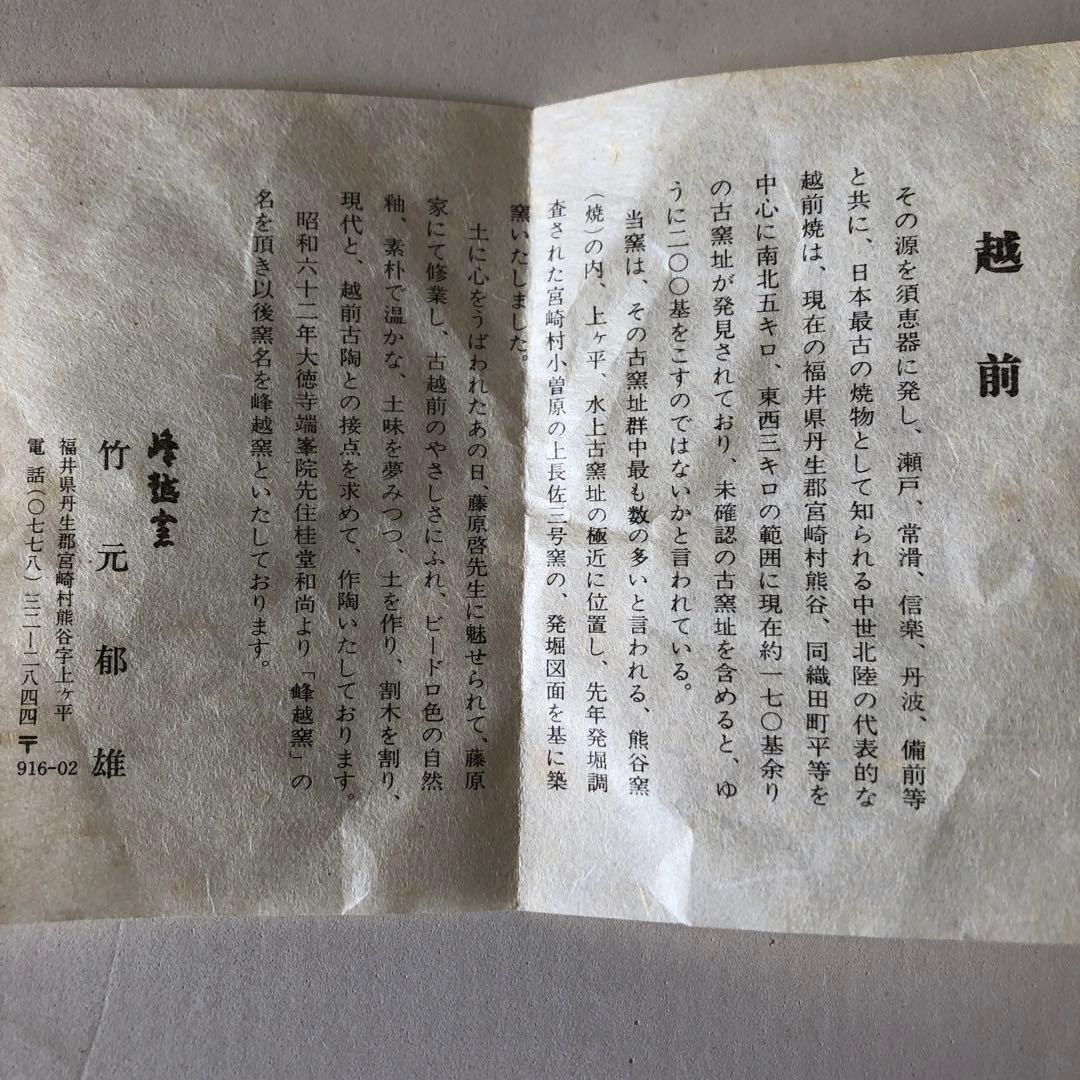 越前
その源を須恵器に発し、瀬戸、常滑、信楽、丹波、備前等
と共に、日本最古の焼物として知られる中世北陸の代表的な
越前焼は、現在の福井県丹生郡宮崎村熊谷、同織田町平等を
中心に南北五キロ、東西三キロの範囲に現在約一七〇基余り
の古窯址が発見されており、未確認の古窯址を含めると、ゆ
うに二〇〇基をこすのではないかと言われている。
当窯は、その古窯址群中最も数の多いと言われる、熊谷窯
(焼)の内、上ヶ平、水上古窯址の極近に位置し、先年発堀調
査された宮崎村小曽原の上長佐三号窯の、発堀図面を基に築
窯いたしました。
土に心をうばわれたあの日、藤原啓先生に魅せられて、藤原
家にて修業し、古越前のやさしさにふれ、ビードロ色の自然
釉、素朴で温かな、土味を夢みつつ、土を作り、割木を割り、
現代と、越前古陶との接点を求めて、作陶いたしております。
昭和六十二年大徳寺端峯院先住桂堂和尚より「峰越窯」の
名を頂き以後窯名を峰越窯といたしております。
峰越窯
竹元郁雄
福井県丹生郡宮崎村熊谷字上ヶ平
電話(〇七七八)三二―二八四四〒
916-02